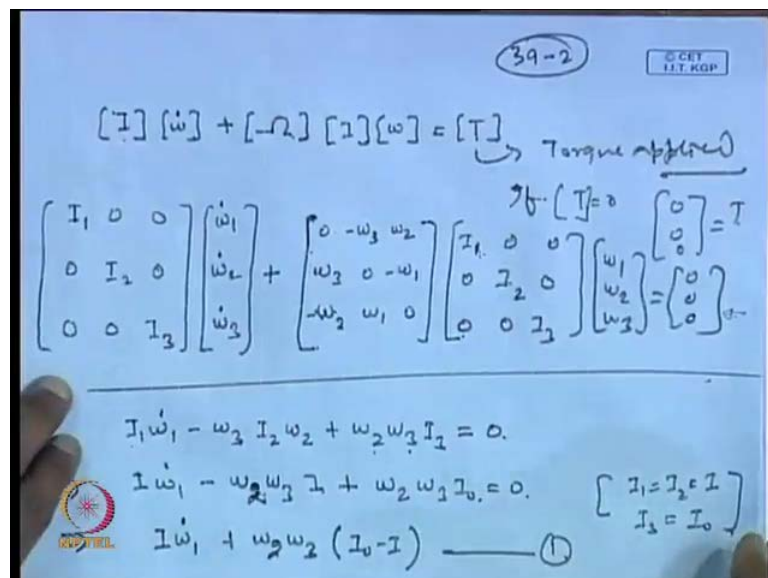 39-2
© CET
I.I.T. KGP
[I] [ω̇] + [Ω] [I] [ω] = [T]
Torque applied
If [T]=0 [0 0 0] = T
[I₁ 0 0 0 I₂ 0 0 0 I₃] [ω̇₁ ω̇₂ ω̇₃] + [0 -ω₃ ω₂ ω₃ 0 -ω₁ -ω₂ ω₁ 0] [I₁ 0 0 0 I₂ 0 0 0 I₃] [ω₁ ω₂ ω₃] = [0 0 0]
I₁ω̇₁ - ω₃ I₂ω₂ + ω₂ω₃I₃ = 0.
Iω̇₁ - ω₂ω₃ I + ω₂ω₃I₀ = 0. [I₁=I₂=I
I₃ = I₀]
Iω̇₁ + ω₂ω₃ (I₀-I) ——— ①
NPTEL